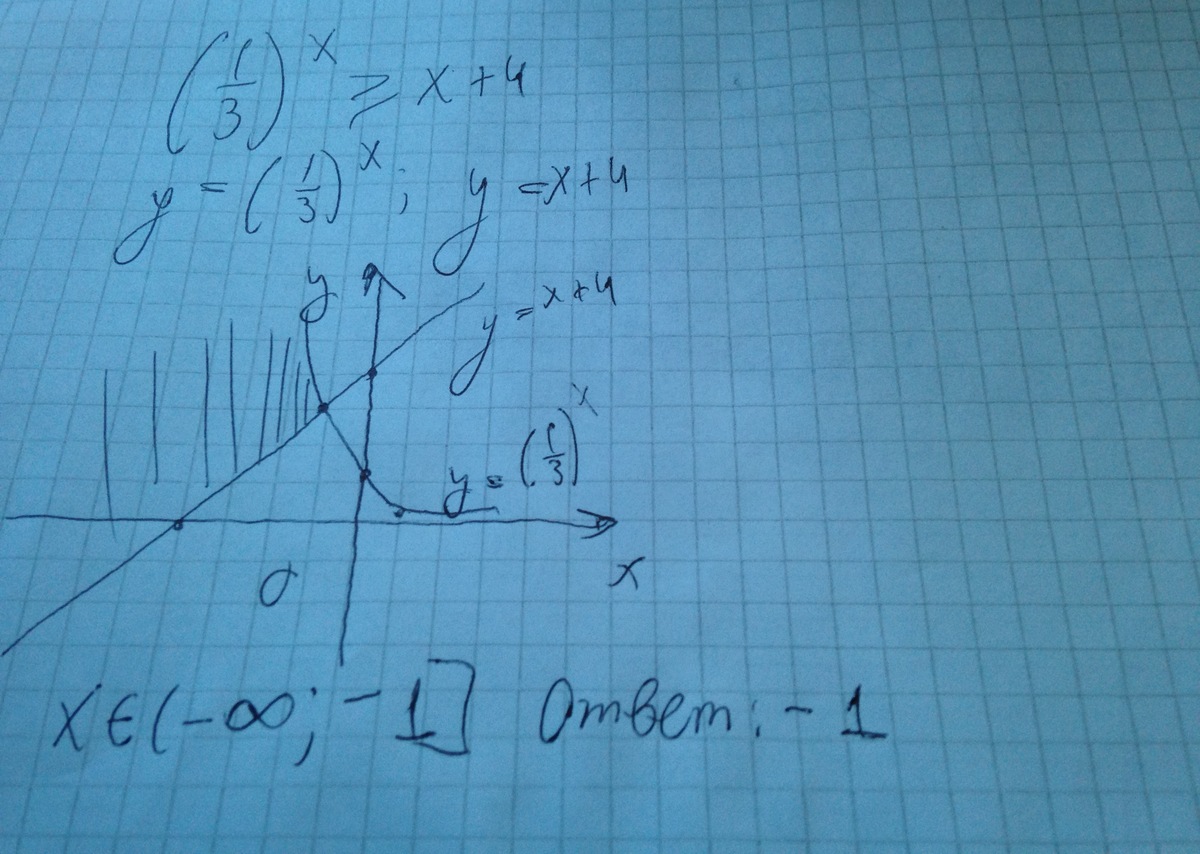 (1/3)^x ≥ x + 4
y = (1/3)^x ; y = x + 4
y
y = x + 4
y = (1/3)^x
0
x
x ∈ (-∞; -1] Ответ: -1